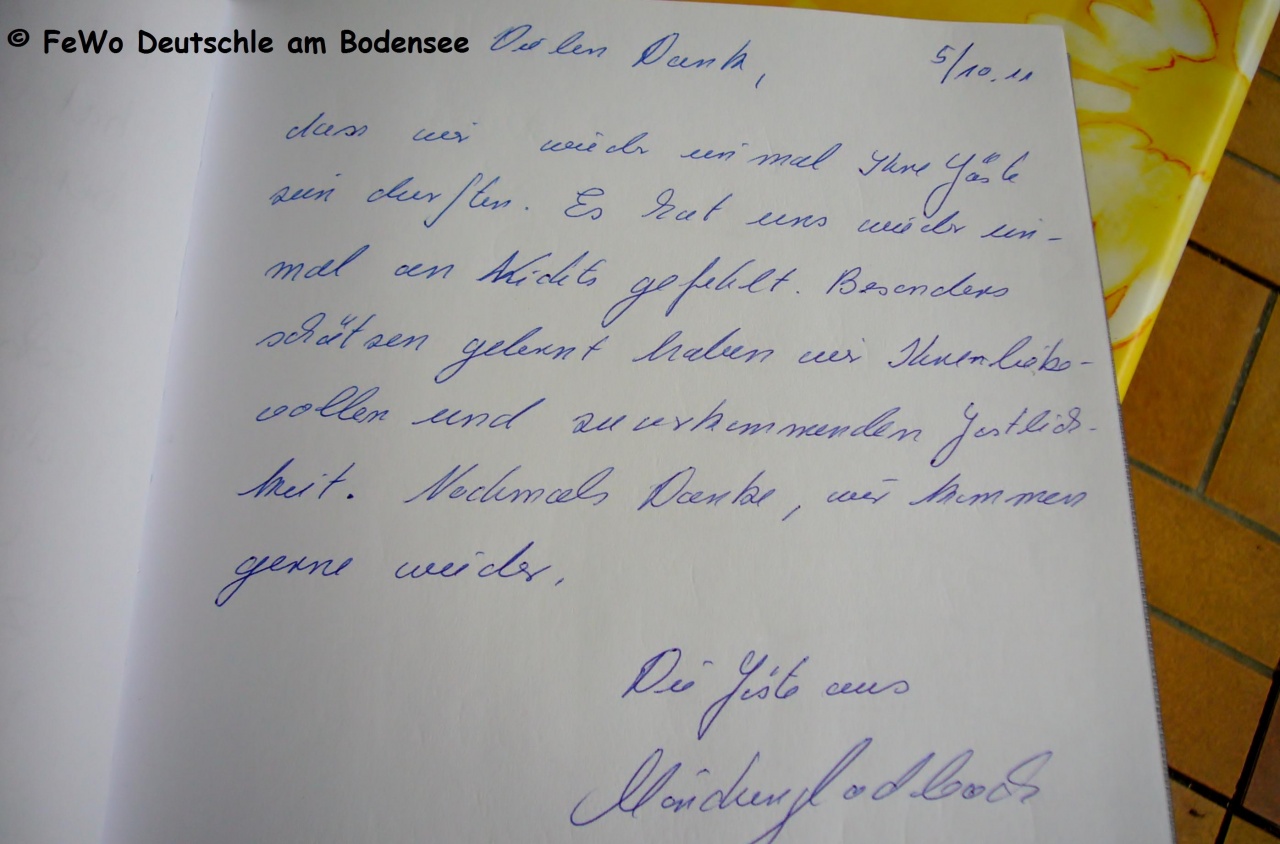 © FeWo Deutschle am Bodensee
Vielen Dank, 5/10.11
dass wir wieder einmal Ihre Gäste
sein durften. Es hat uns wieder ein-
mal an Nichts gefehlt. Besonders
schätzen gelernt haben wir Ihren liebe-
vollen und zuvorkommenden Gastlich-
keit. Nochmals Danke, wir kommen
gerne wieder.
Die Gäste aus
Mönchengladbach